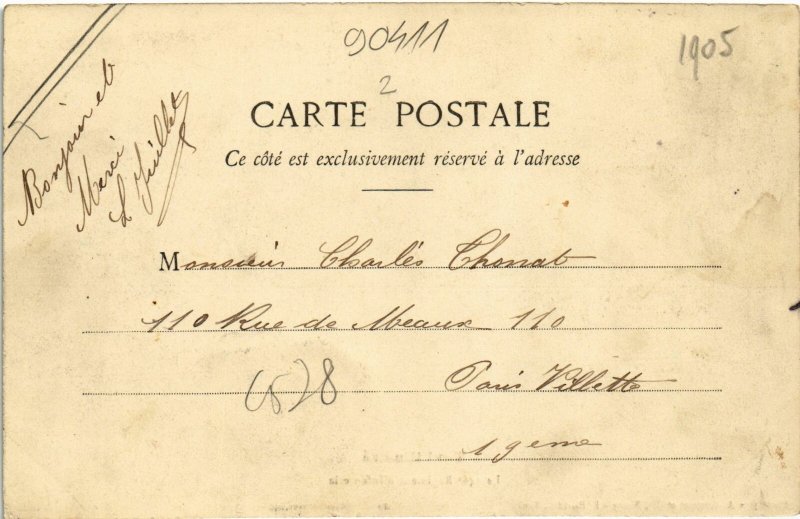 90411
1905
2
Bonjour et
Merci
L Juillet
CARTE POSTALE
Ce côté est exclusivement réservé à l'adresse
Monsieur Charles Thonat
110 Rue de Meaux 110
Paris Villette
19eme